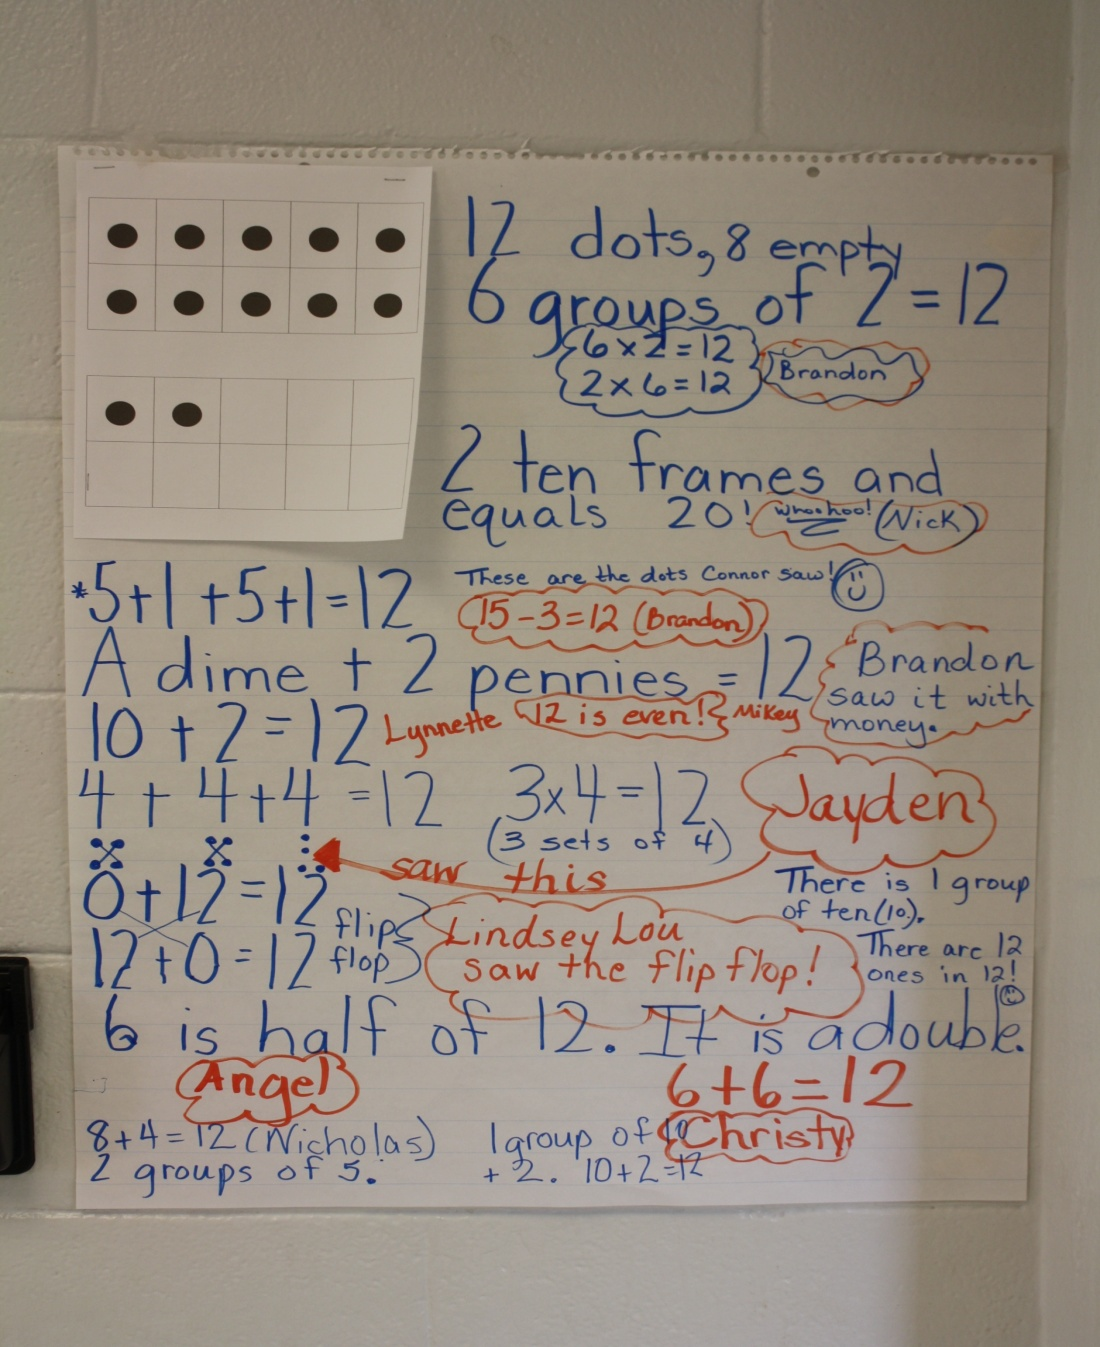 12 dots, 8 empty
6 groups of 2 = 12
6 x 2 = 12
2 x 6 = 12
Brandon
2 ten frames and
equals 20! whoohoo! (Nick)
*5+1+5+1=12
These are the dots Connor saw!
15-3=12 (Brandon)
A dime + 2 pennies = 12
Brandon
saw it with
money.
10 + 2 = 12 Lynnette
12 is even! Mikey
4 + 4+4 = 12
3x4=12
(3 sets of 4)
Jayden
saw this
0+12=12
12+0=12
flip
flop
Lindsey Lou
saw the flip flop!
There is 1 group
of ten (10).
There are 12
ones in 12!
6 is half of 12. It is a double.
Angel
6+6=12
Christy
8+4=12 (Nicholas)
2 groups of 5.
1 group of 10
+ 2. 10+2=12